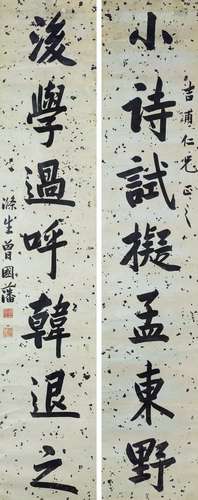 吉甫仁兄正之
小詩試擬孟東野
後學過呼韓退之
滌生曾國藩